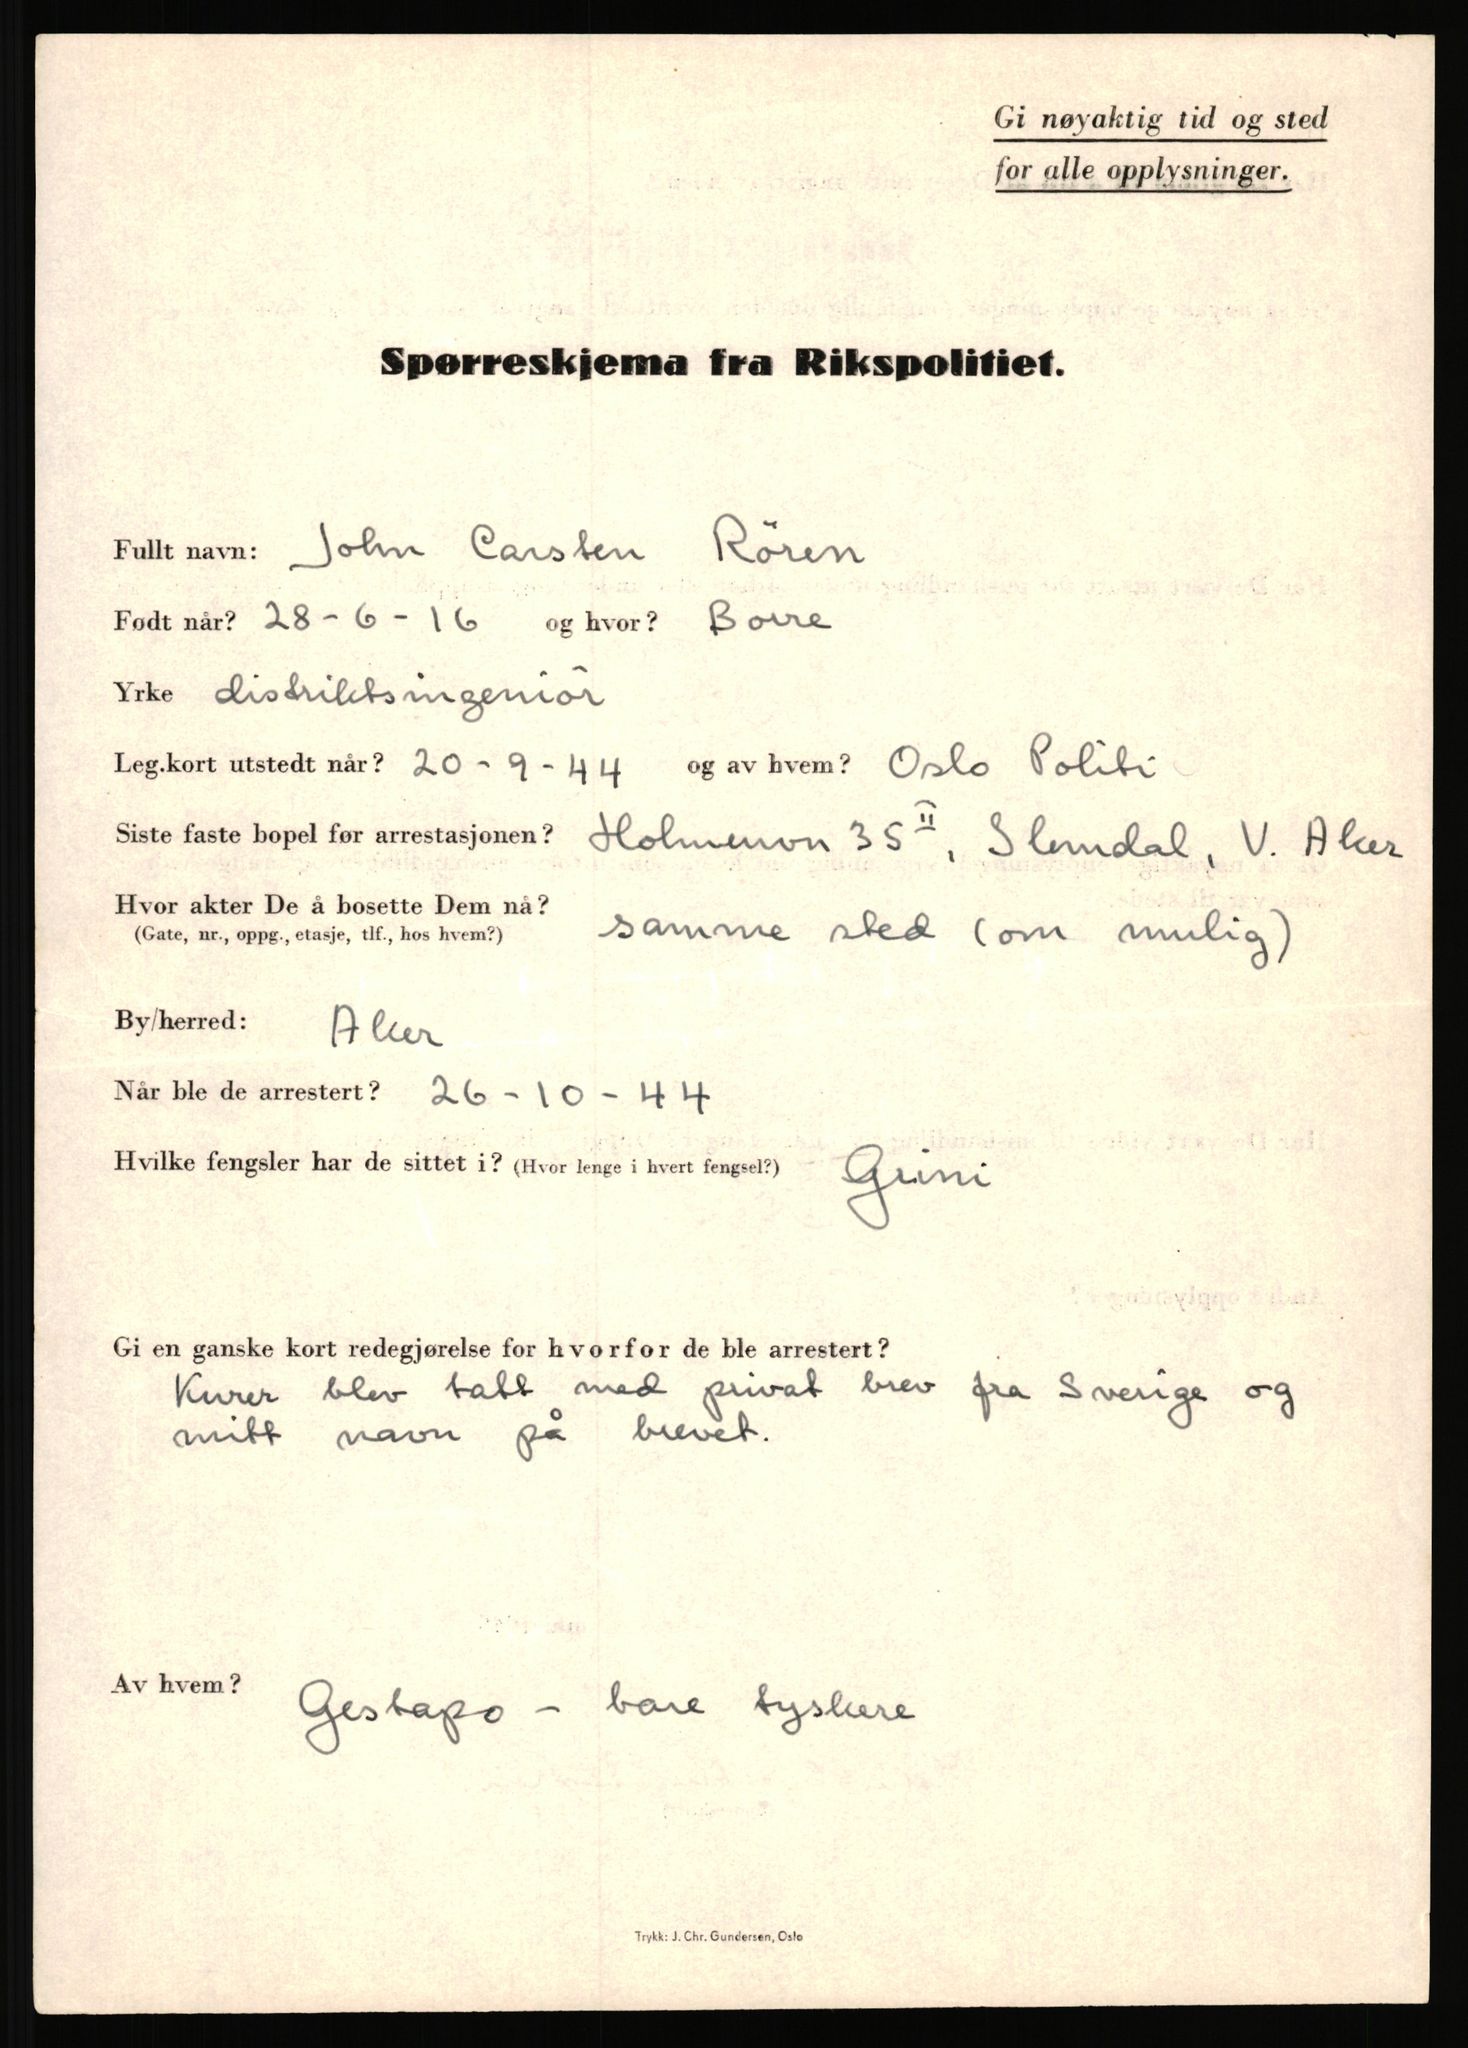 Gi nøyaktig tid og sted
for alle opplysninger.
Spørreskjema fra Rikspolitiet.
Fullt navn: John Carsten Rören
Født når? 28-6-16 og hvor? Borre
Yrke distriktsingeniör
Leg.kort utstedt når? 20-9-44 og av hvem? Oslo Politi
Siste faste bopel før arrestasjonen? Holmenvn 35 II, Slemdal, V. Aker
Hvor akter De å bosette Dem nå?
(Gate, nr., oppg., etasje, tlf., hos hvem?) samme sted (om mulig)
By/herred: Aker
Når ble de arrestert? 26-10-44
Hvilke fengsler har de sittet i? (Hvor lenge i hvert fengsel?) Grini
Gi en ganske kort redegjørelse for hvorfor de ble arrestert?
Kurer blev tatt med privat brev fra Sverige og
mitt navn på brevet.
Av hvem? Gestapo - bare tyskere
Trykk: J. Chr. Gundersen, Oslo